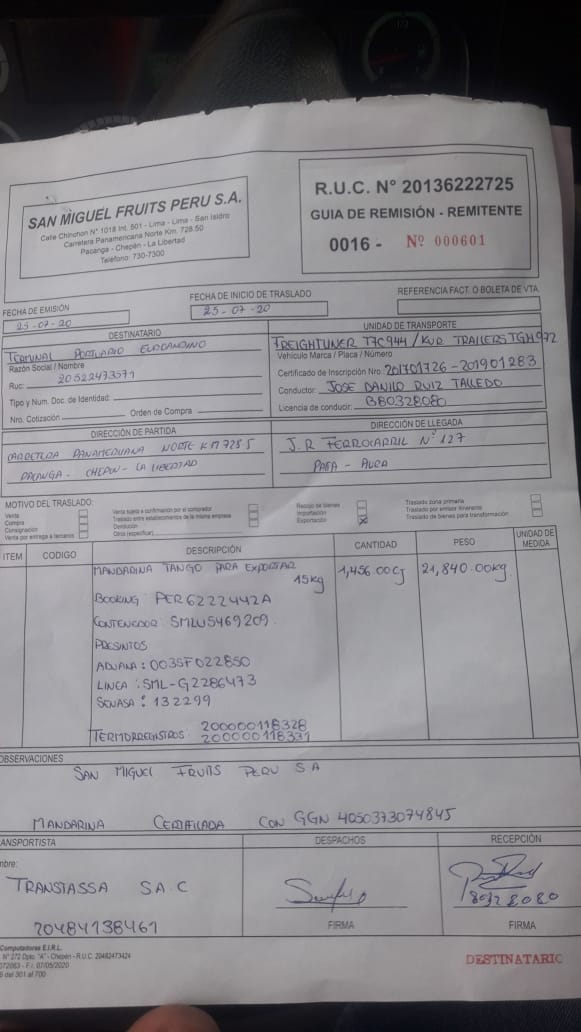 SAN MIGUEL FRUITS PERU S.A.
Calle Chinchon N° 1018 Int. 501 - Lima - Lima - San Isidro
Carretera Panamericana Norte Km. 728.50
Pacanga - Chepén - La Libertad
Teléfono: 730-7300
R.U.C. N° 20136222725
GUIA DE REMISIÓN - REMITENTE
0016 - Nº 000601
FECHA DE EMISIÓN
25-07-20
FECHA DE INICIO DE TRASLADO
25-07-20
REFERENCIA FACT. O BOLETA DE VTA.
DESTINATARIO
TERMINAL PORTUARIO EUROANDINO
Razón Social / Nombre
Ruc: 20522473571
Tipo y Num. Doc. de Identidad:
Nro. Cotización Orden de Compra
UNIDAD DE TRANSPORTE
FREIGHTLINER T7C944 / KUR TRAILERS TGM972
Vehículo Marca / Placa / Número
Certificado de Inscripción Nro. 201701726-201901283
Conductor: JOSE DANILO RUIZ TALLEDO
Licencia de conducir: B80328080
DIRECCIÓN DE PARTIDA
CARRETERA PANAMERICANA NORTE KM 728.5
PACANGA - CHEPEN - LA LIBERTAD
DIRECCIÓN DE LLEGADA
J.R FERROCARRIL N° 127
PAITA - PIURA
MOTIVO DEL TRASLADO:
Venta
Compra
Consignación
Venta por entrega a terceros
Venta sujeta a confirmación por el comprador
Traslado entre establecimientos de la misma empresa
Devolución
Otros (especificar)
Recojo de bienes
Importación
Exportación X
Traslado zona primaria
Traslado por emisor itinerante
Traslado de bienes para transformación
ITEM CODIGO DESCRIPCIÓN CANTIDAD PESO UNIDAD DE MEDIDA
MANDARINA TANGO PARA EXPORTAR 15kg 1,456.00CJ 21,840.00kg
BOOKING PER6222442A
CONTENEDOR SMLU5469209
PRESINTOS
ADUANA : 0035F022850
LINEA : SML-G2286473
SENASA : 132299
TERMOREGISTROS 200000118328
200000118331
OBSERVACIONES
SAN MIGUEL FRUITS PERU S A
MANDARINA CERTIFICADA CON GGN 4050373074845
TRANSPORTISTA DESPACHOS RECEPCIÓN
TRANSIASSA S.A.C
20484138461
80328080
FIRMA FIRMA
Computadoras E.I.R.L.
N° 272 Dpto. "A" - Chepén - R.U.C. 20482473424
F.I. 07/05/2020
del 501 al 700
DESTINATARIO